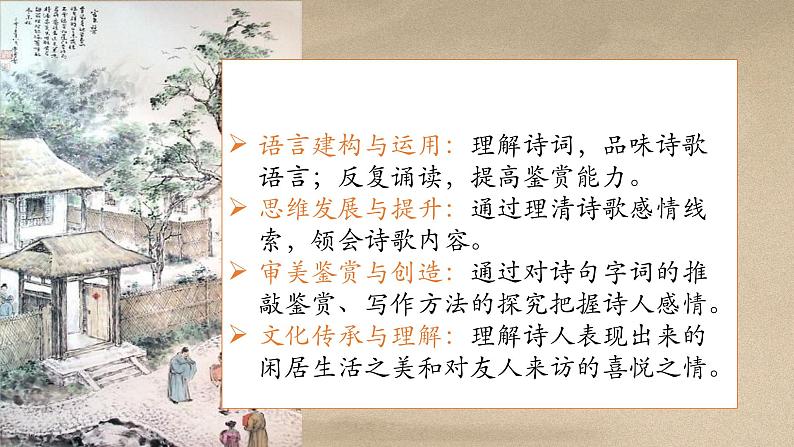 语言建构与运用：理解诗词，品味诗歌
语言；反复诵读，提高鉴赏能力。
思维发展与提升：通过理清诗歌感情线
索，领会诗歌内容。
审美鉴赏与创造：通过对诗句字词的推
敲鉴赏、写作方法的探究把握诗人感情。
文化传承与理解：理解诗人表现出来的
闲居生活之美和对友人来访的喜悦之情。